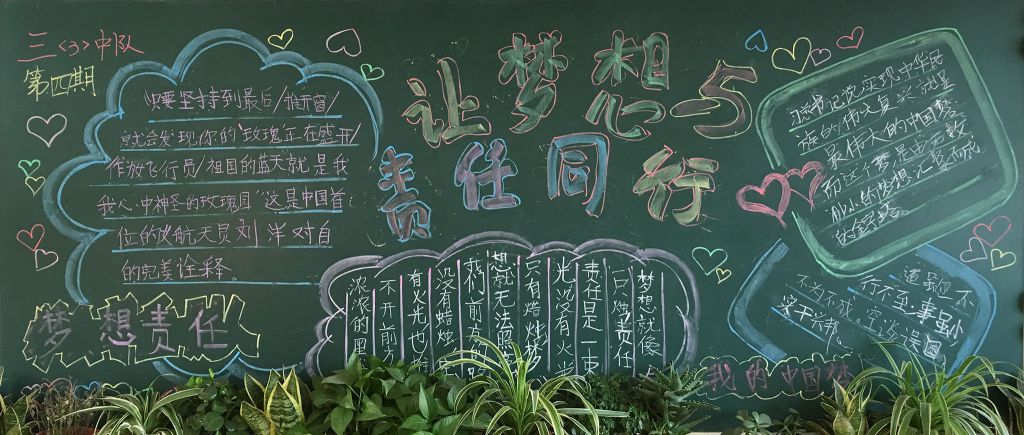 三〈3〉中队
第四期
让梦想与
责任同行
只要坚持到最后/推开窗/
就会发现你的"玫瑰"正在盛开/
作为飞行员/祖国的蓝天就是我
我人中神圣的玫瑰园"这是中国首
位的女航天员刘洋对自
的完美诠释。
梦想责任
梦想就像
一只烛责任
责任是一束
光没有火
只有蜡烛梦
想就无法
我们前方的
没有蜡烛
有火光也
不开前方
浓浓的黑
习总书记说实现中华民
族的伟大复兴就是
最伟大的中国梦
而这个梦是由无数
的小的梦想汇聚而成
道虽迩不
行不至事虽小
不为不成 空谈误国
实干兴邦。
我的中国梦